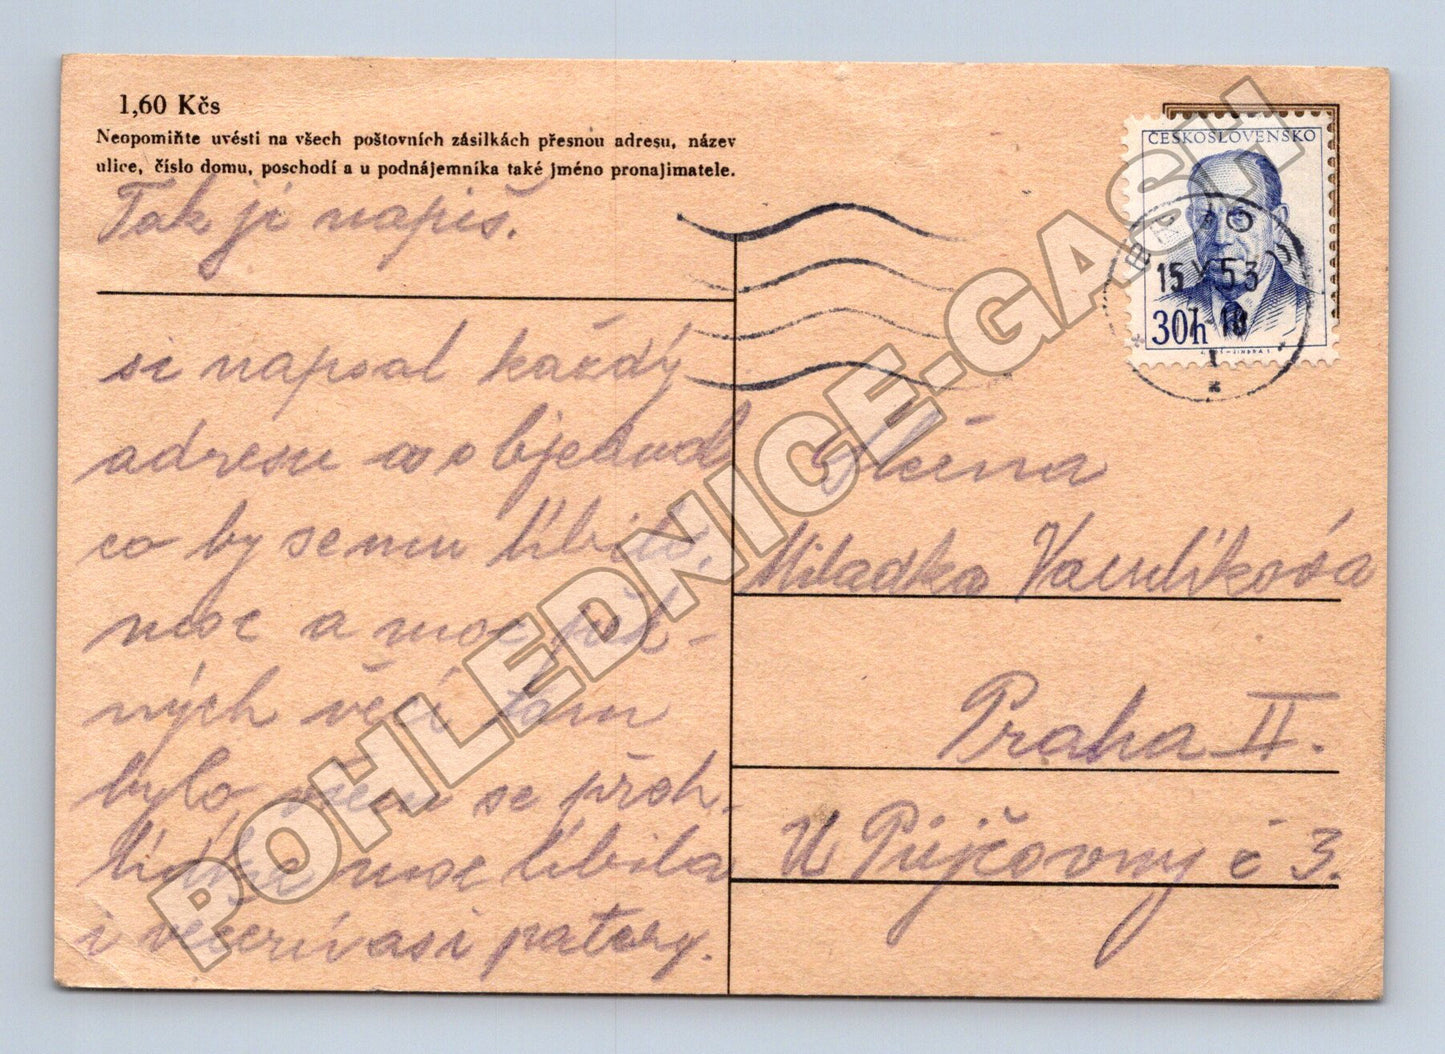 1,60 Kčs
Neopomiňte uvésti na všech poštovních zásilkách přesnou adresu, název
ulice, číslo domu, poschodí a u podnájemníka také jméno pronajimatele.
Tak ji napiš.
si napsal každý
adresu a objednal
co by se mu líbilo,
moc a moc pěk-
ných věcí tam
bylo, všem se přeh-
lídka moc líbila
i večerí asi patery.
ČESKOSLOVENSKO
BRNO
15 V 53
30h
Slečna
Miladka Vavulíková
Praha II.
U Půjčovny č 3.
POHLEDNICE.GASH